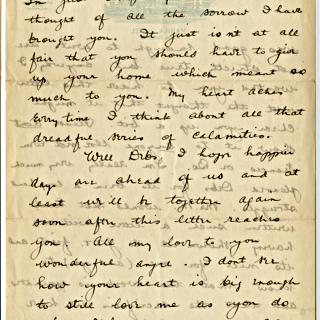 thought of all the sorrow I have
brought you. It just isnt at all
fair that you should have to give
up your home which meant so
much to you. My heart aches
every time I think about all that
dreadful series of calamities.
Well Debs, I hope happier
days are ahead of us and at
least we'll be together again
soon after this letter reaches
you. All my love to you
wonderful angel. I dont see
how your heart is big enough
to still love me as you do